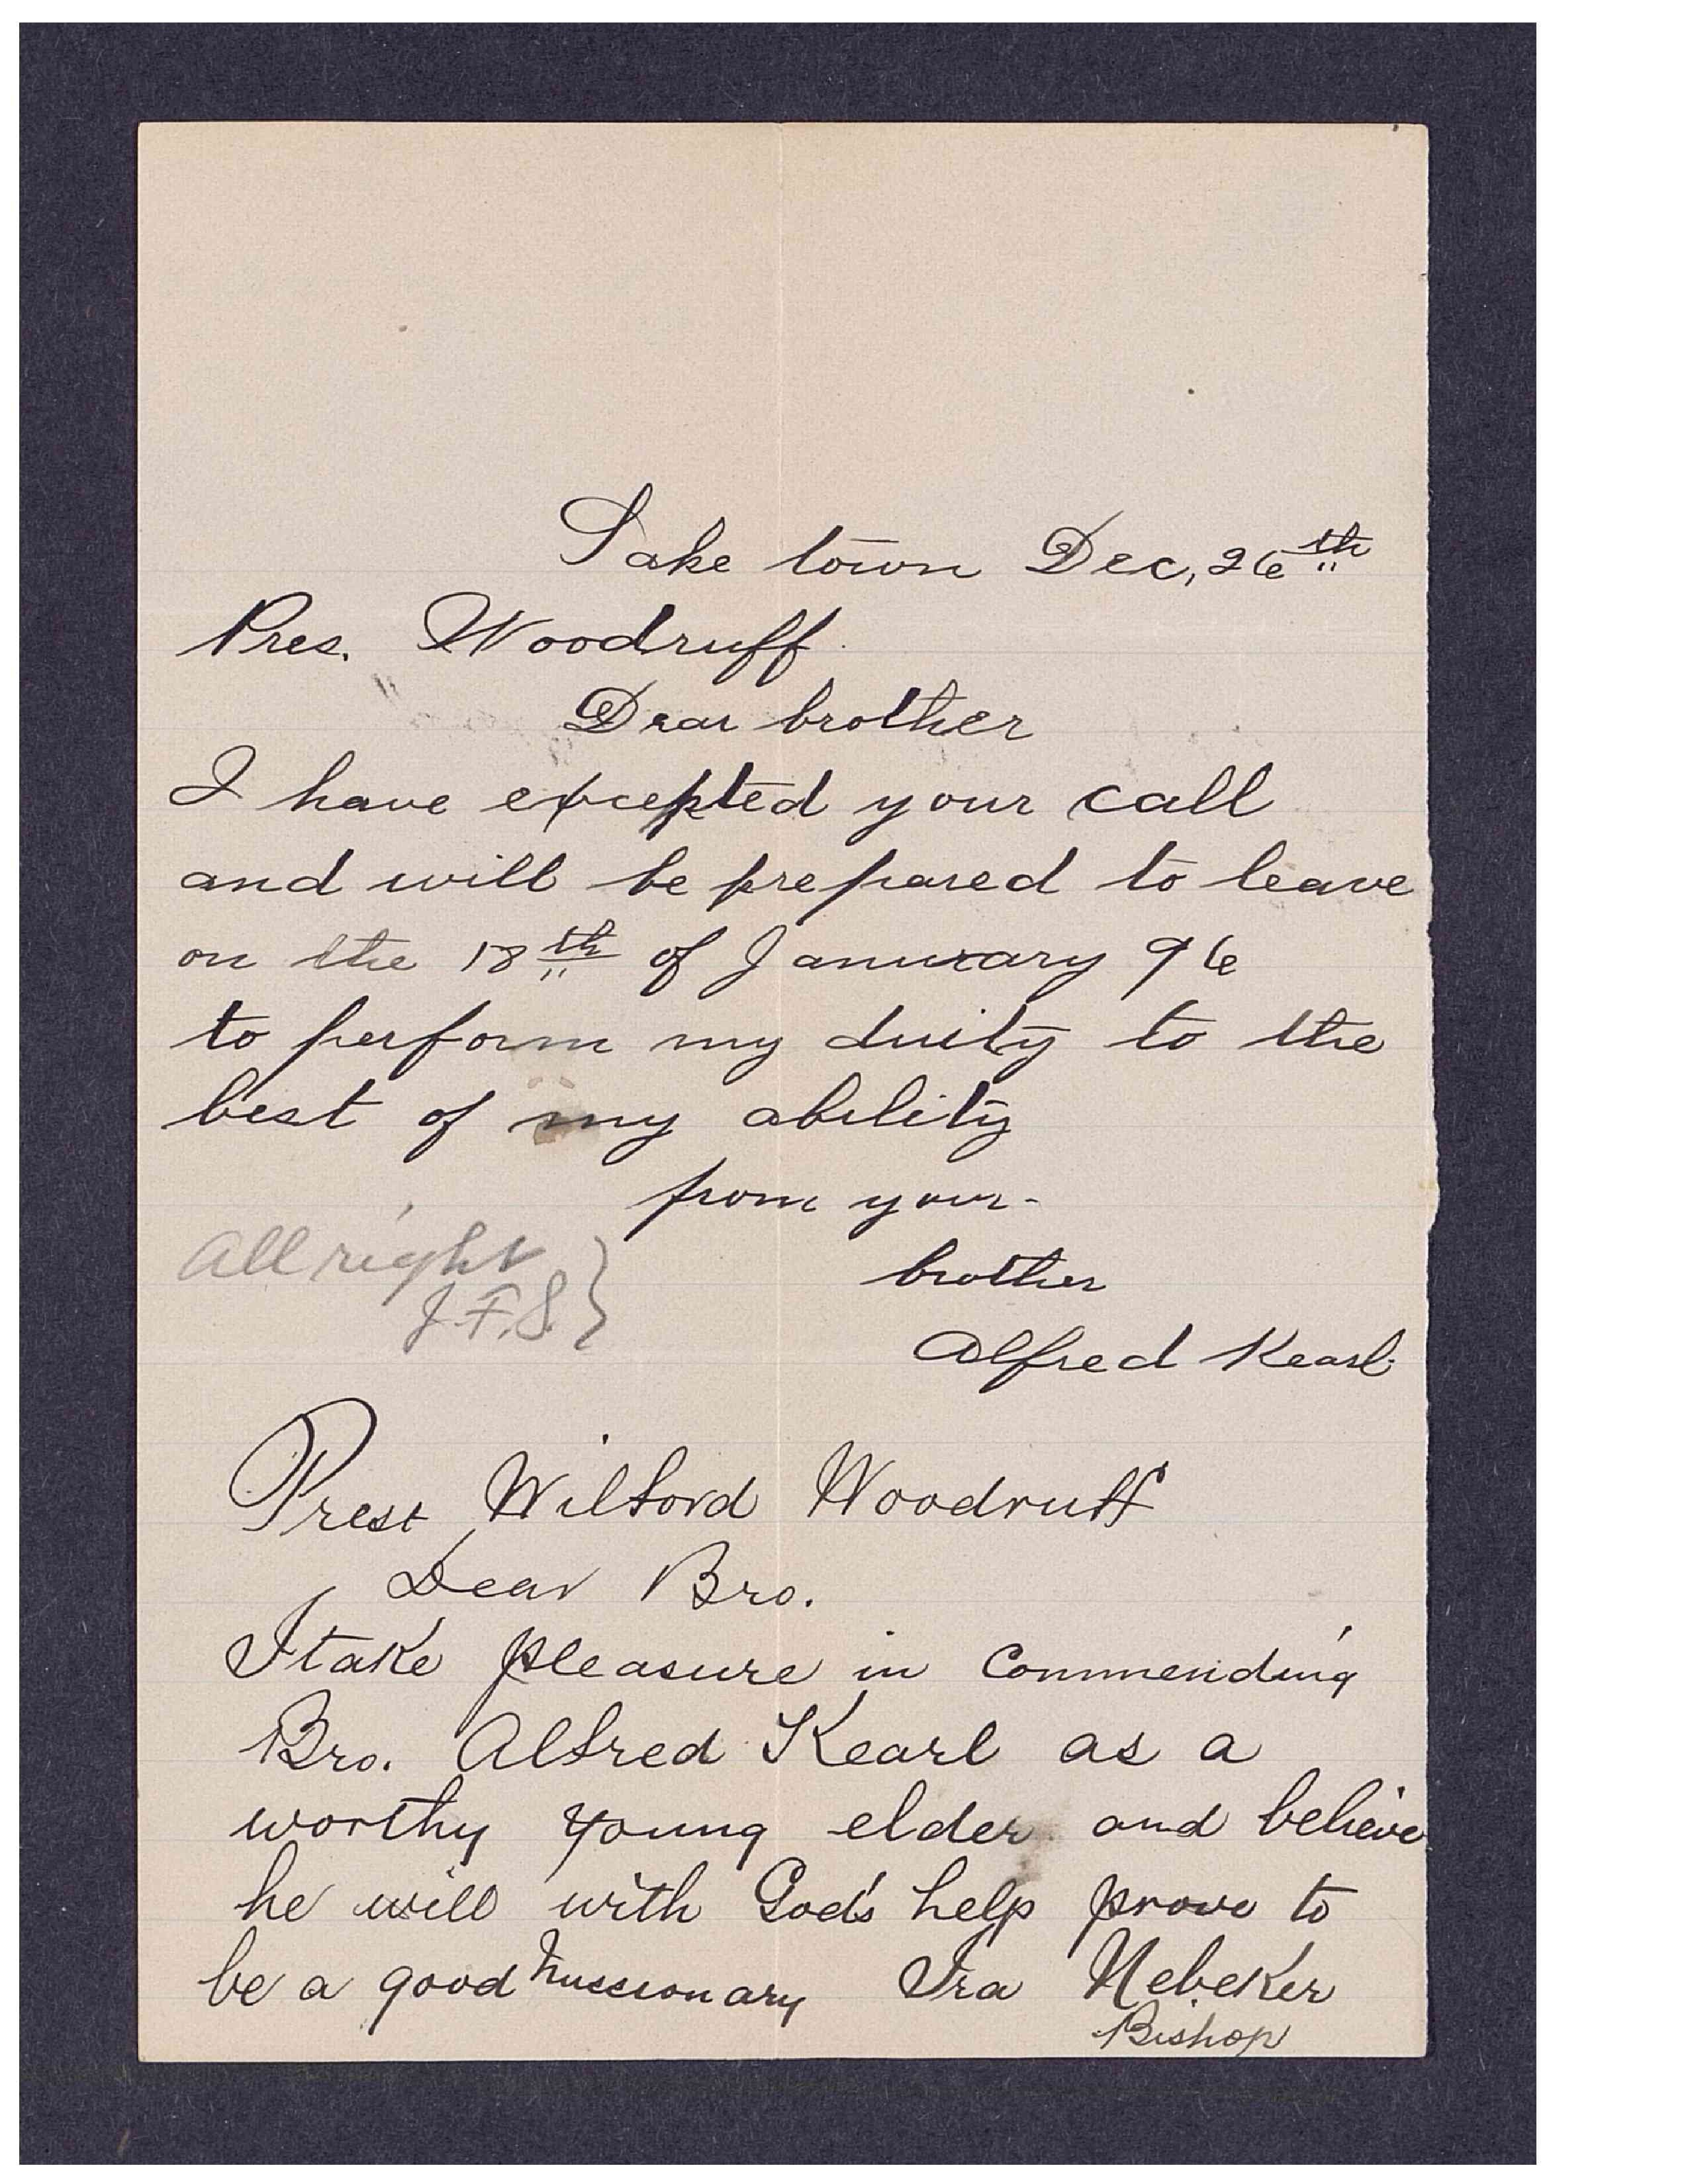 Lake town Dec, 26th
Pres. Woodruff.
Dear brother
I have excepted your call
and will be prepared to leave
on the 18th of Januarary 96
to perform my duity to the
best of my ability
from your-
brother
Alfred Kearl.
All right
J.F.S. }
Prest Wilford Woodruff
Dear Bro.
I take pleasure in Commending
Bro. Alfred Kearl as a
worthy young elder and believe
he will with God's help prove to
be a good missionary Ira Nebeker
Bishop